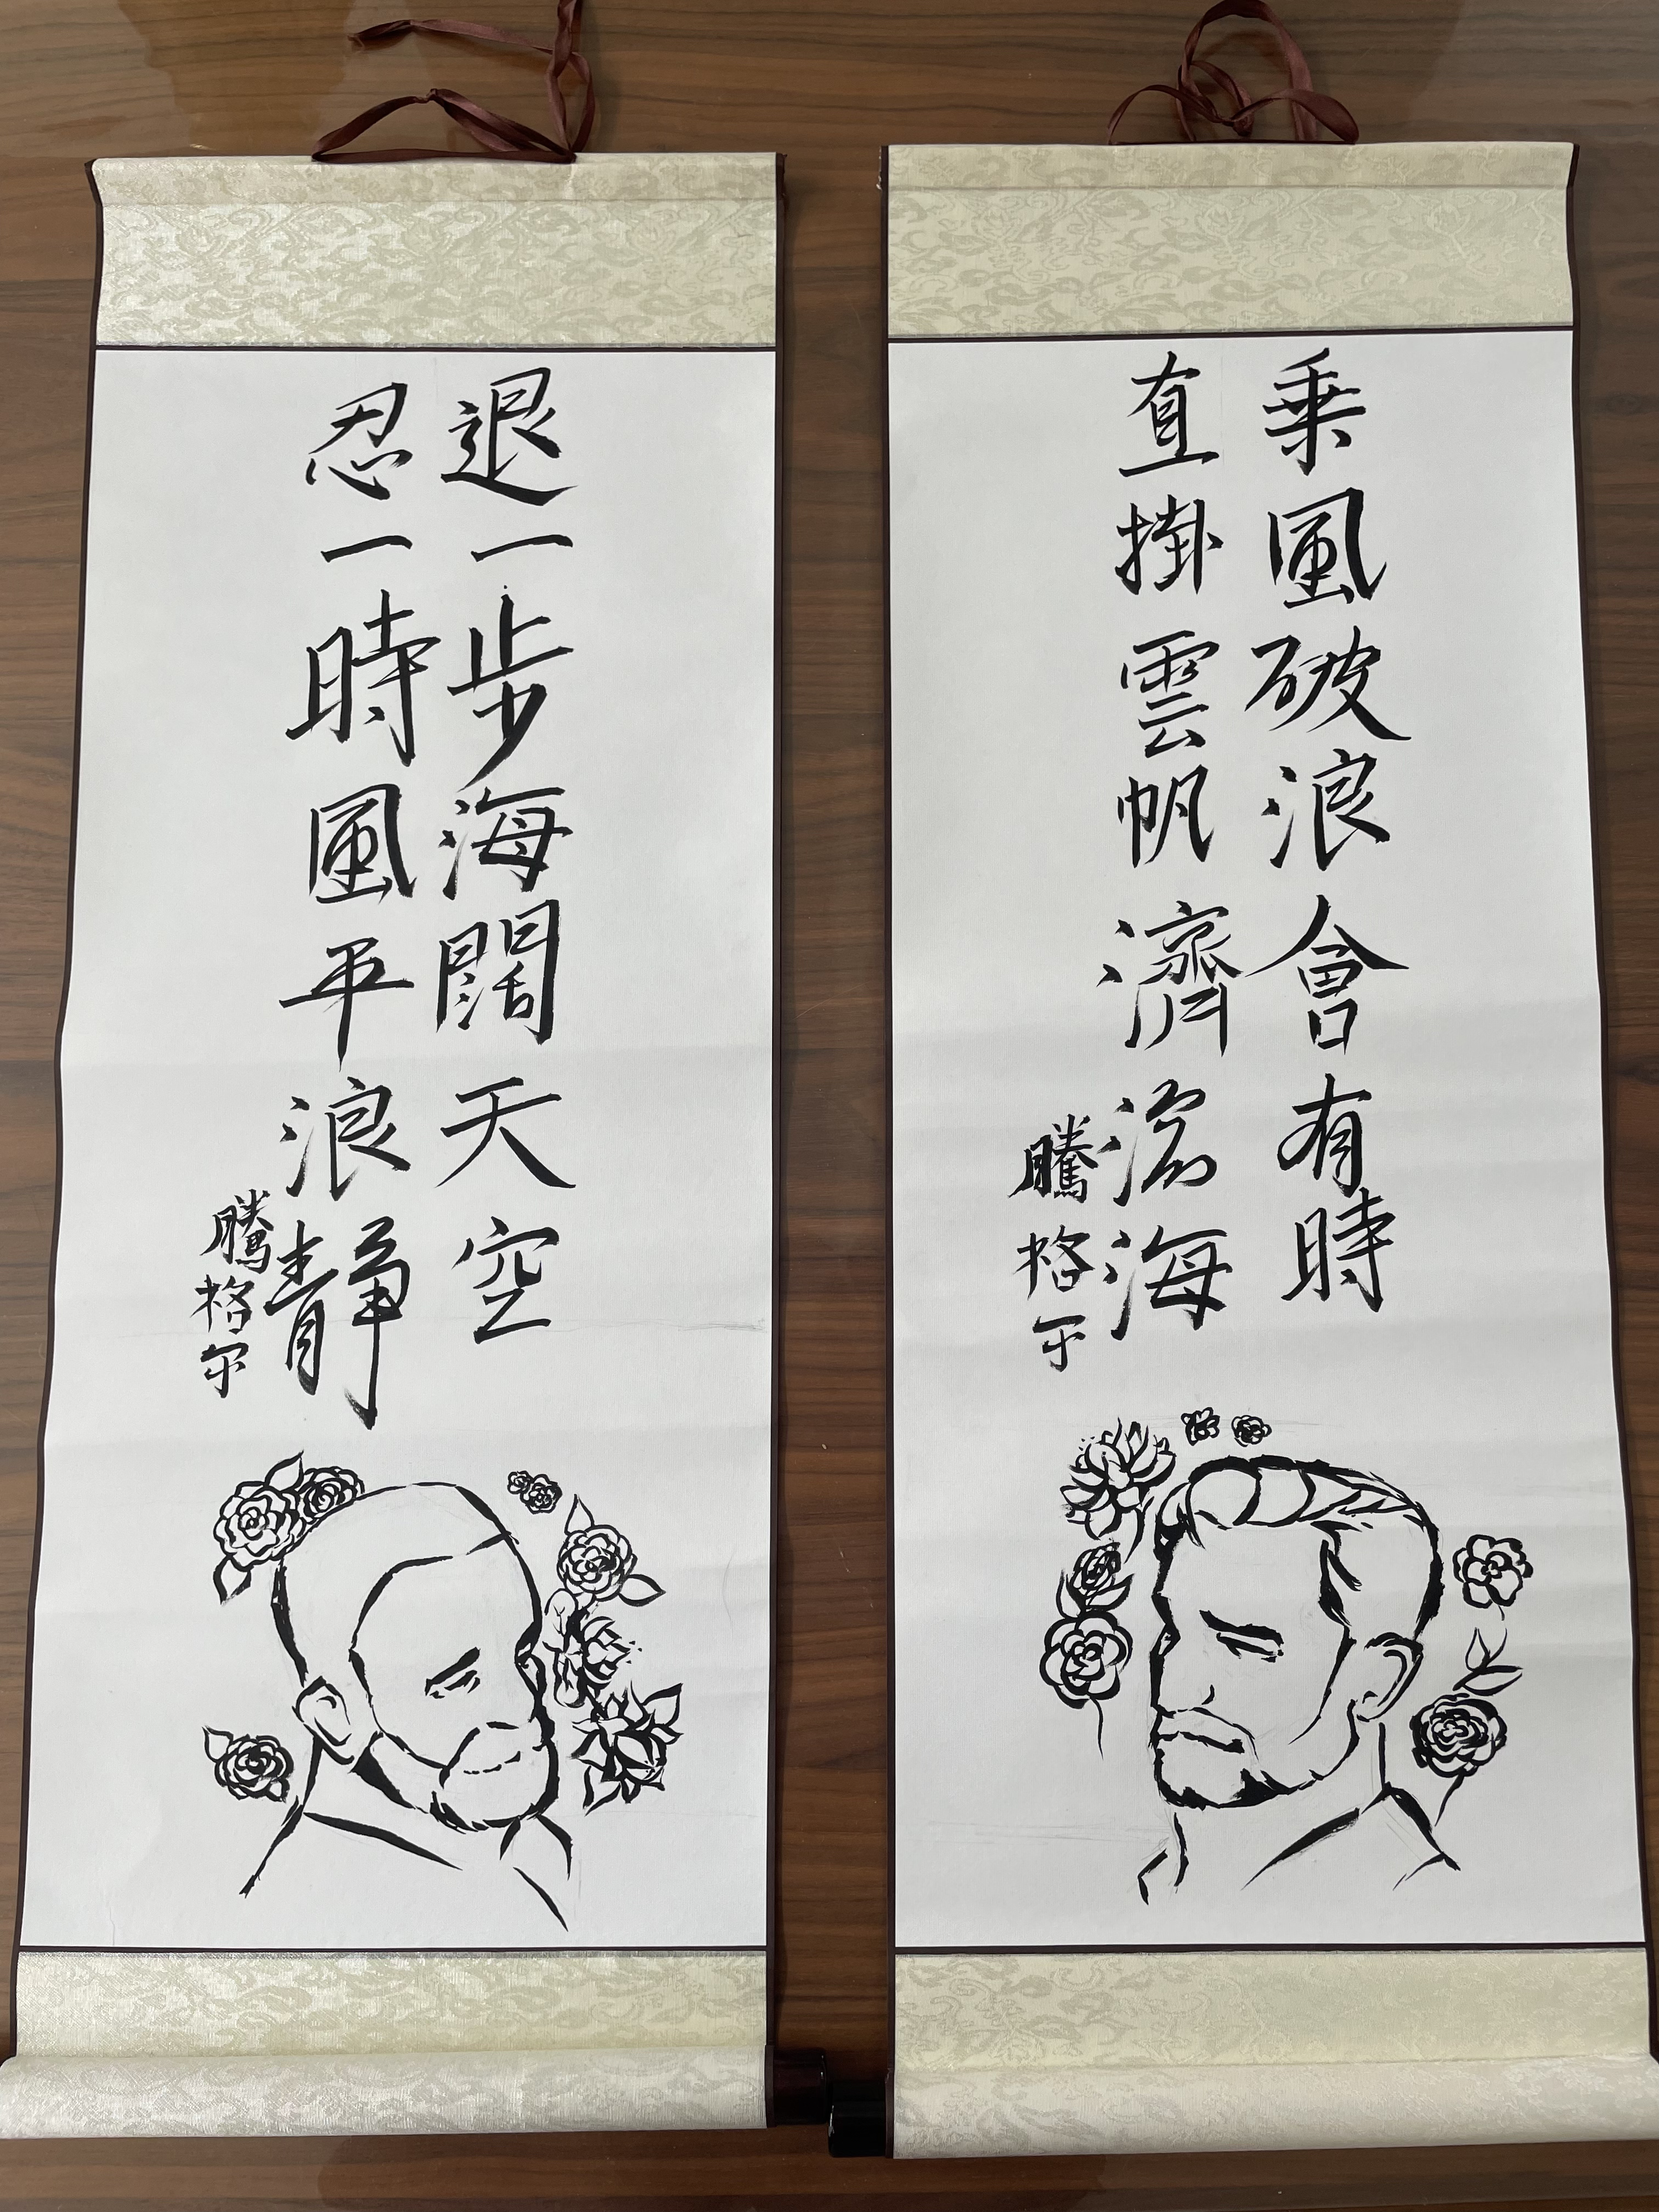 乘風破浪會有時
直掛雲帆濟滄海
騰格尔
退一步海闊天空
忍一時風平浪靜
騰格尔